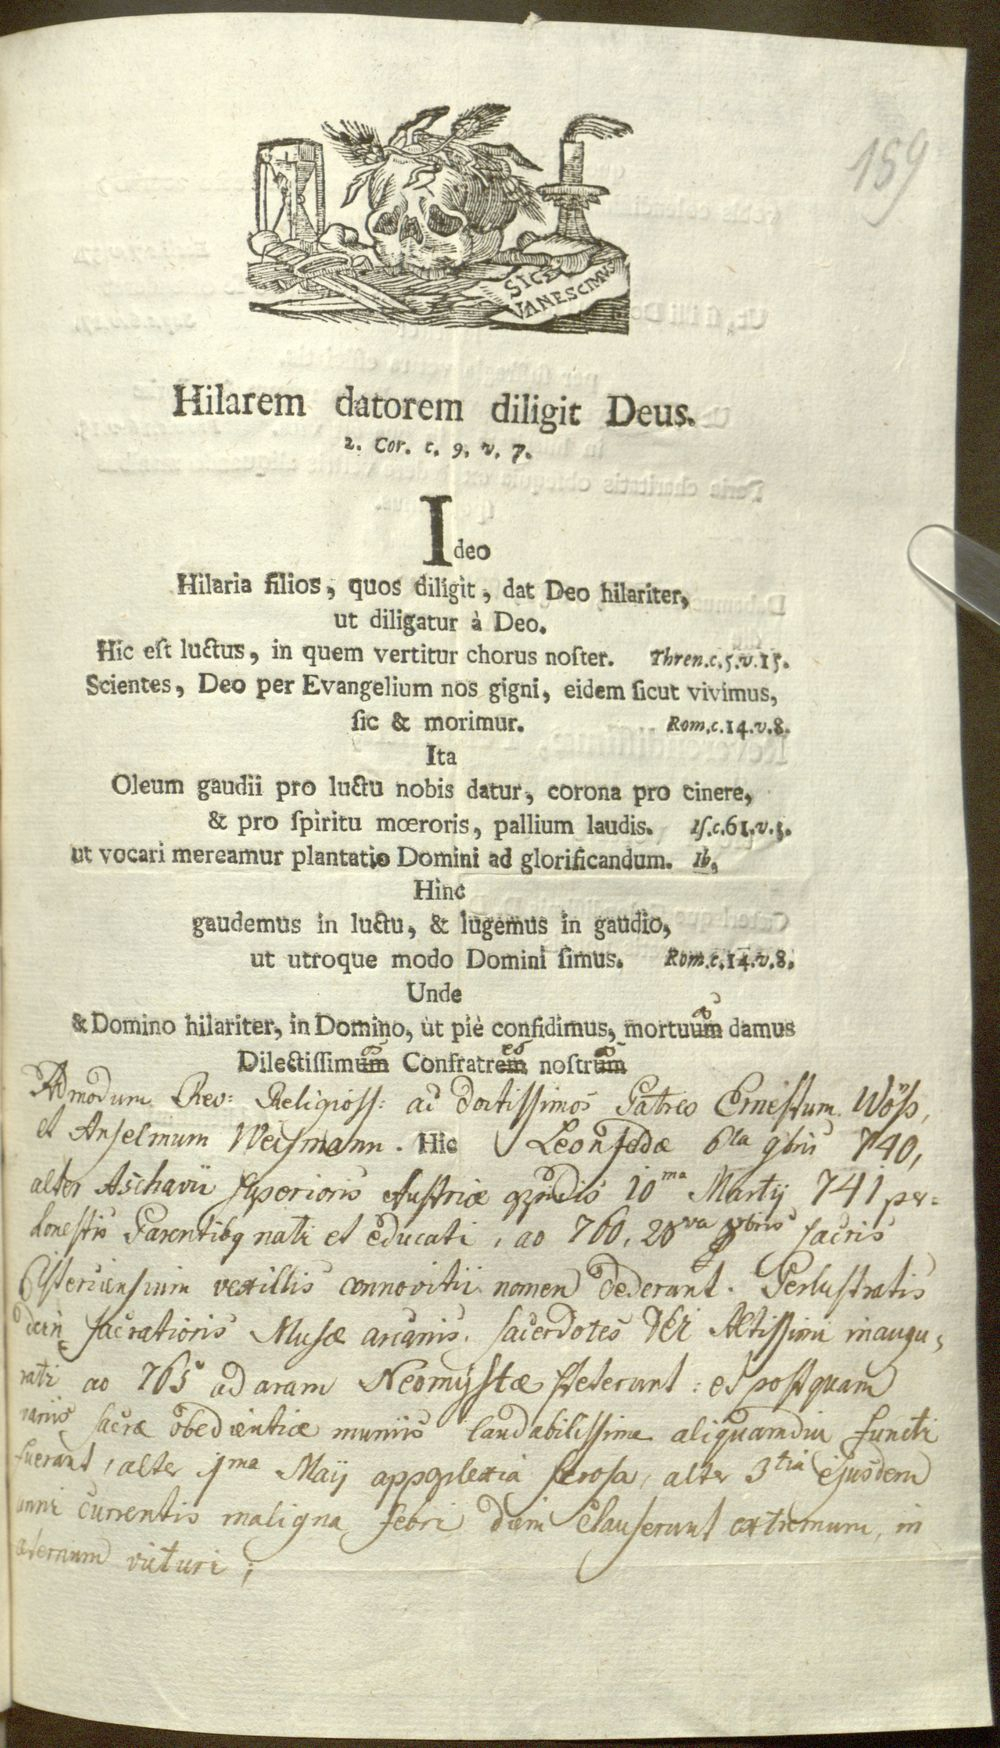 189
SIC EVANESCIMUS
Hilarem datorem diligit Deus.
2. Cor. c. 9. v. 7.
Ideo
Hilaria filios, quos diligit, dat Deo hilariter,
ut diligatur à Deo.
Hic eſt luctus, in quem vertitur chorus noſter. Thren.c.5.v.15.
Scientes, Deo per Evangelium nos gigni, eidem ſicut vivimus,
ſic & morimur. Rom.c.14.v.8.
Ita
Oleum gaudii pro luctu nobis datur, corona pro cinere,
& pro ſpiritu mœroris, pallium laudis. Iſ.c.61.v.3.
ut vocari mereamur plantatio Domini ad glorificandum. Ib.
Hinc
gaudemus in luctu, & lugemus in gaudio,
ut utroque modo Domini ſimus. Rom.c.14.v.8.
Unde
& Domino hilariter, in Domino, ut piè confidimus, mortuum damus
Dilectiſſimum Confratrem noſtrum
Admodum Rev: Religioss: ac doctissimos Patres Ernestum Wöss,
et Anselmum Weismann. Hic Leonfeldæ 6ta 9bris 740,
alter Aschavii Superioris Austriæ 10ma Martij 741 per-
honestis Parentibq nati et educati, ao 760, 20va 9bris sacris
Cisterciensium vexillis connovitii nomen dederant. Perlustratis
dein sacratioris Musæ arcanis, sacerdotes DEI Altissimi inaugu-
rati ao 765 ad aram Neomystæ steterunt: et postquam
variis sacræ obedientiæ muniis laudabilissime aliquamdiu functi
fuerant, alter 1ma Maij apoplexia serosa, alter 3tia ejusdem
anni currentis maligna febri diem clauserunt extremum, in
æternum victuri;